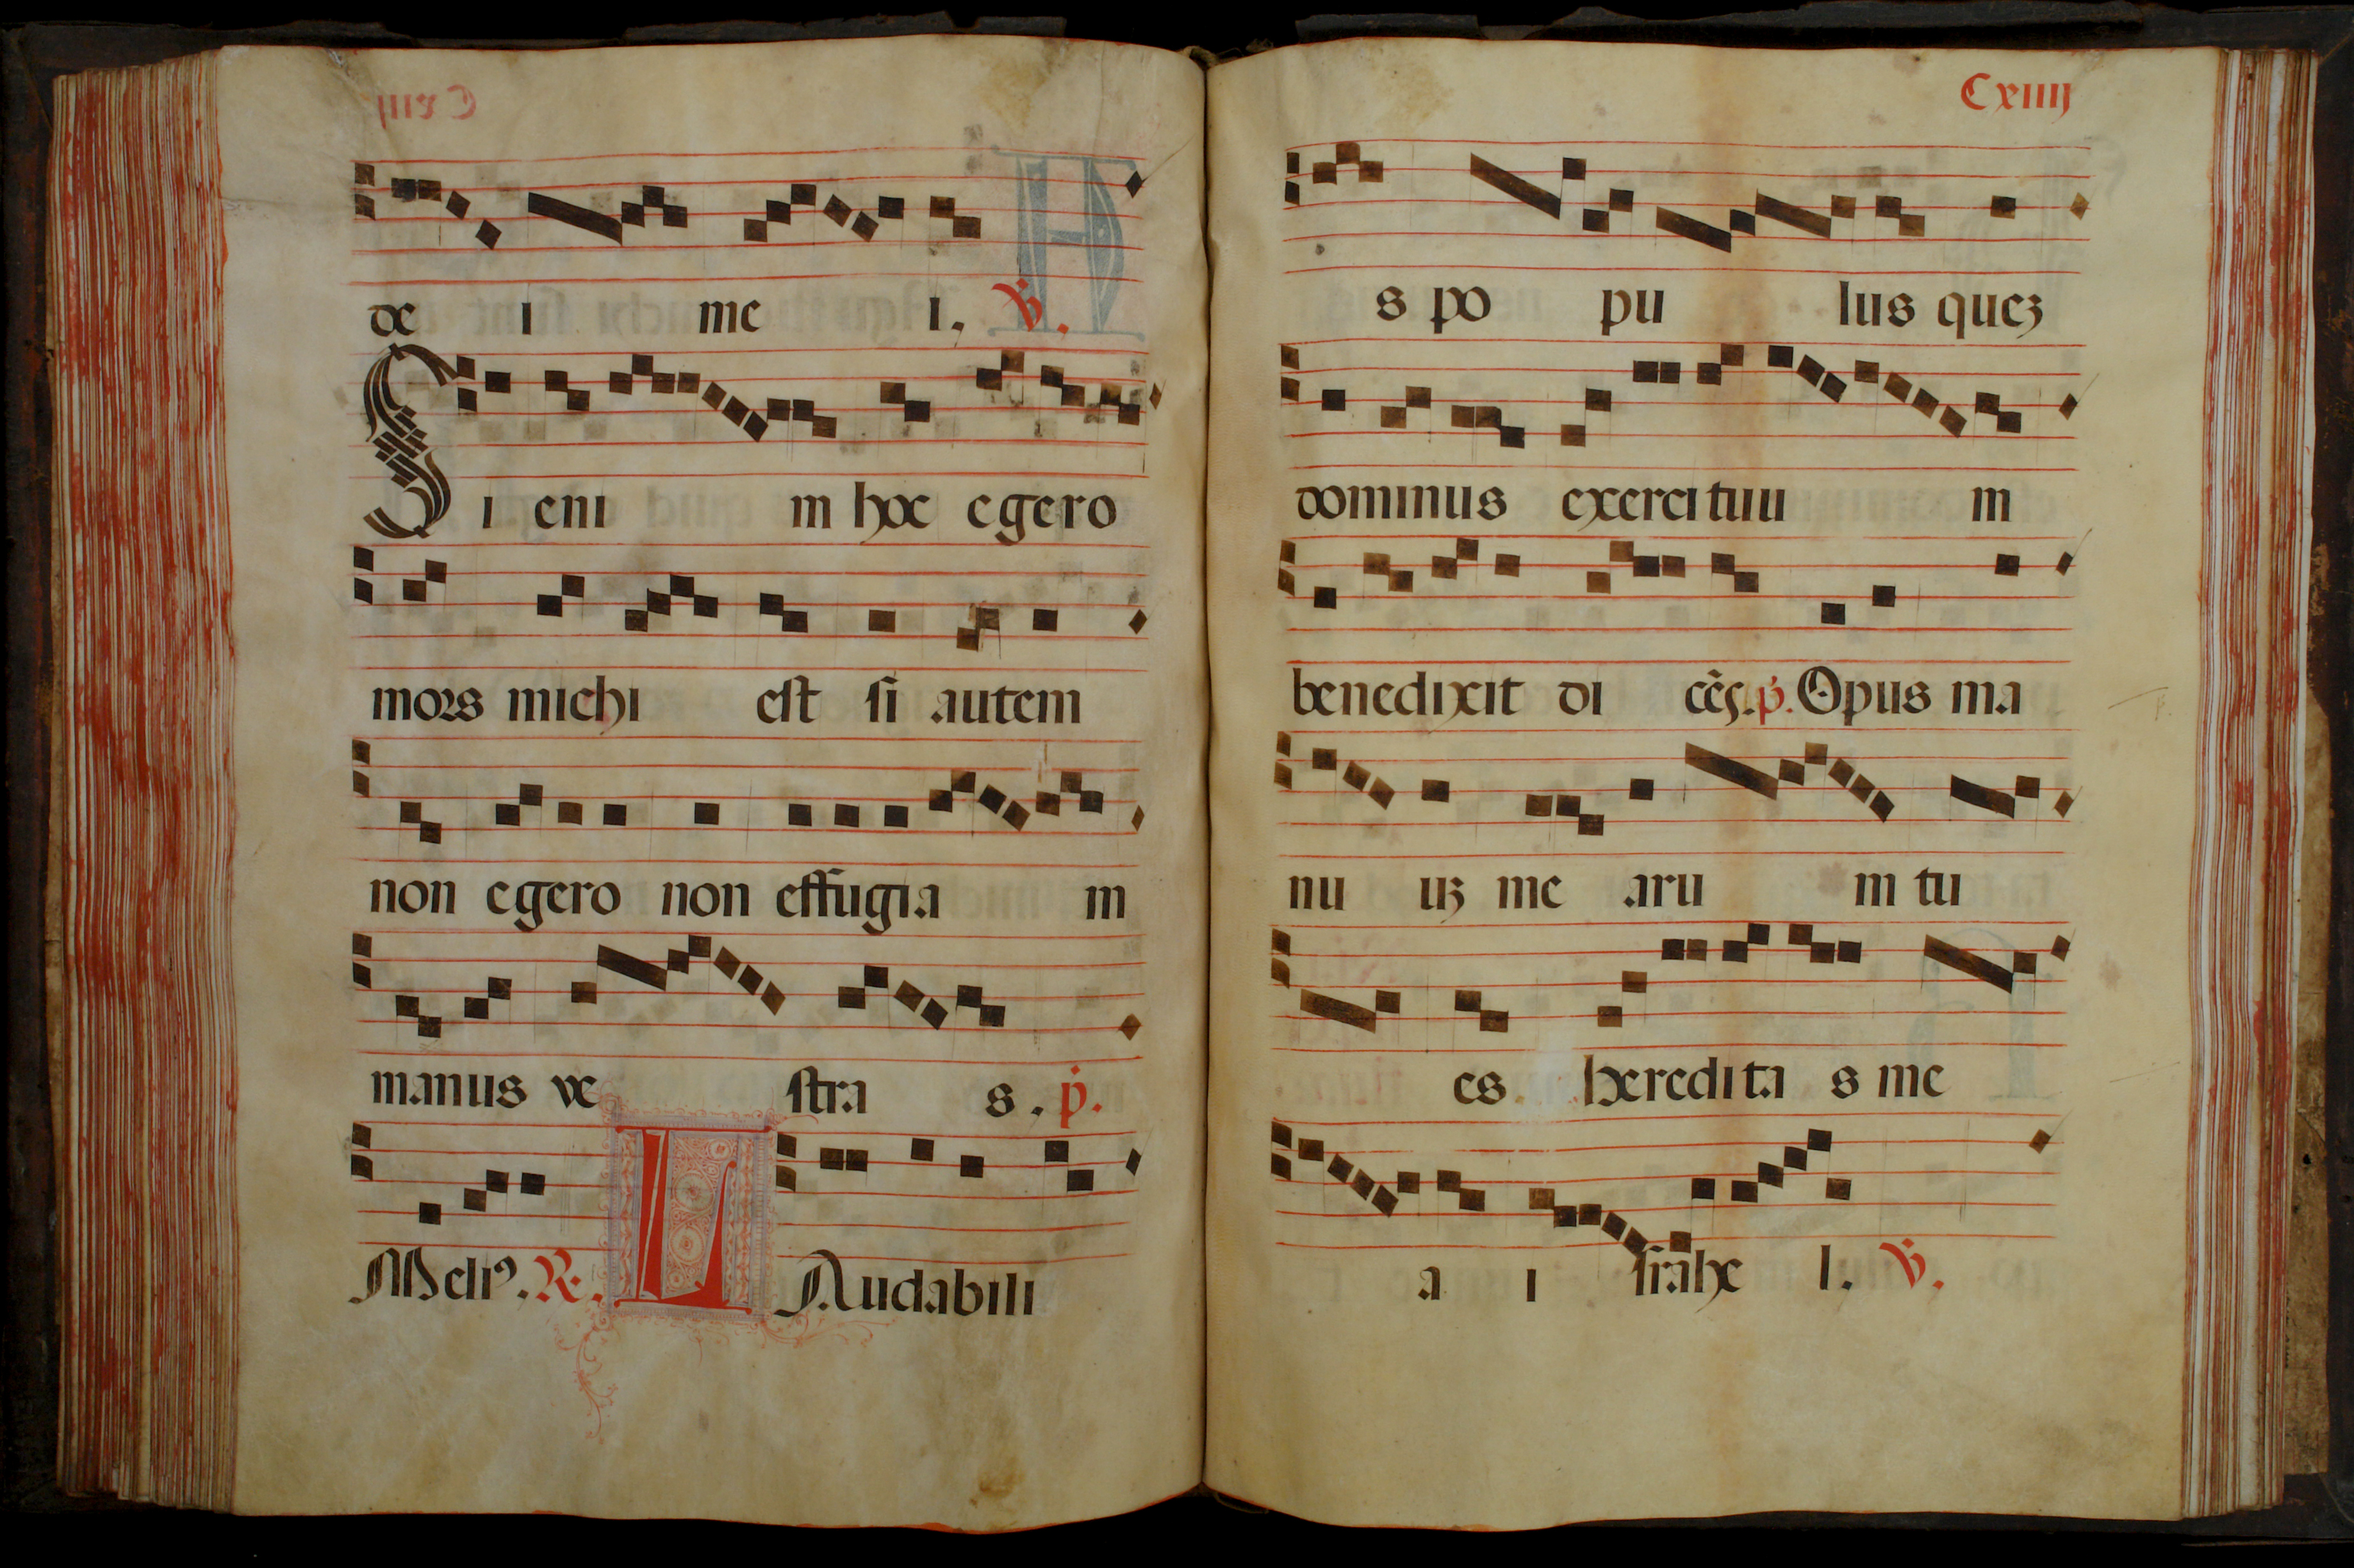 de i me i. V.
Si eni m hoc egero
mors michi est si autem
non egero non effugia m
manus ve stra s. p.
Meliꝰ. R. L Audabili
Cxiiij
s po pu lus quez
dominus exercituu m
benedixit di cēs. p. Opus ma
nu uz me aru m tu
es heredita s me
a i srahe l. V.